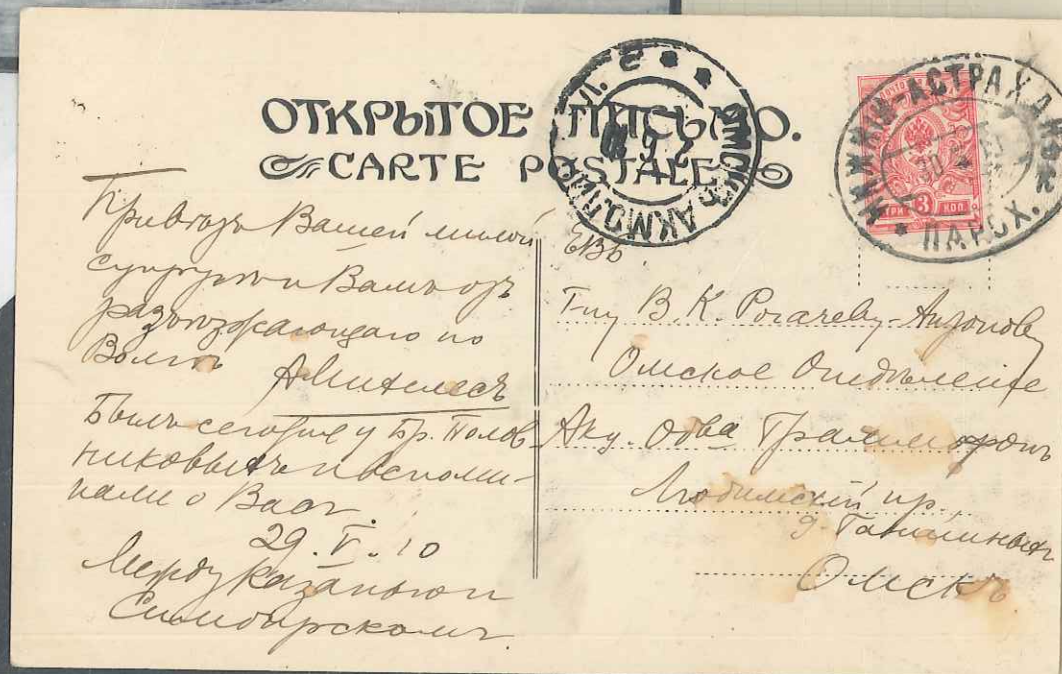 ОТКРЫТОЕ ПИСЬМО.
CARTE POSTALE
ОМСКЪ АКМОЛ.
НИЖНІЙ-АСТРАХАНЬ
ПАРОХ.
ТРИ 3 КОП.
Привѣтъ Вашей милой
супругѣ и Вамъ отъ
разъѣзжающаго по
Волгѣ
АМителесъ
Былъ сегодня у Бр. Полов-
никовыхъ и вспоми-
нали о Васъ.
29.V.10
Между Казанью и
Симбирскомъ
ЕВБ
Г-ну В.К. Рогачеву-Антонову
Омское Отдѣленіе
Акц. О-ва Граммофонъ
Любинскій пр.
д. Ганшиныхъ
Омскъ